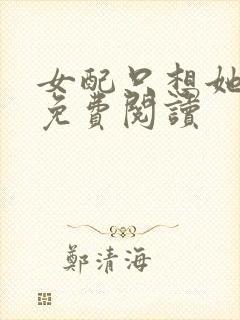 女配只想她
免費閱讀
鄭清海